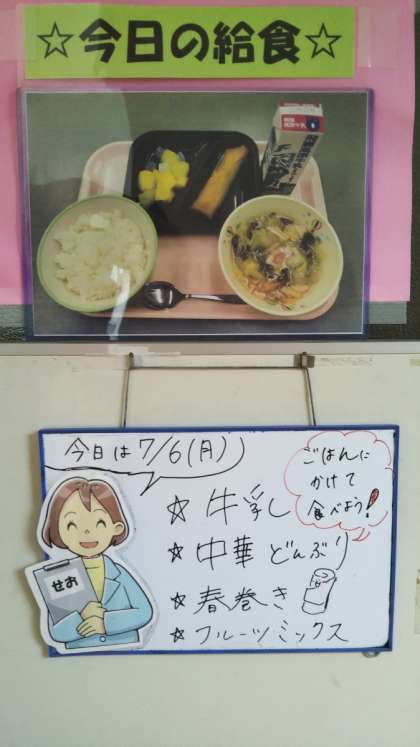 ☆今日の給食☆
今日は7/6(月)
ごはんに
かけて
食べよう!
☆牛乳
☆中華どんぶり
☆春巻き
☆フルーツミックス
せお